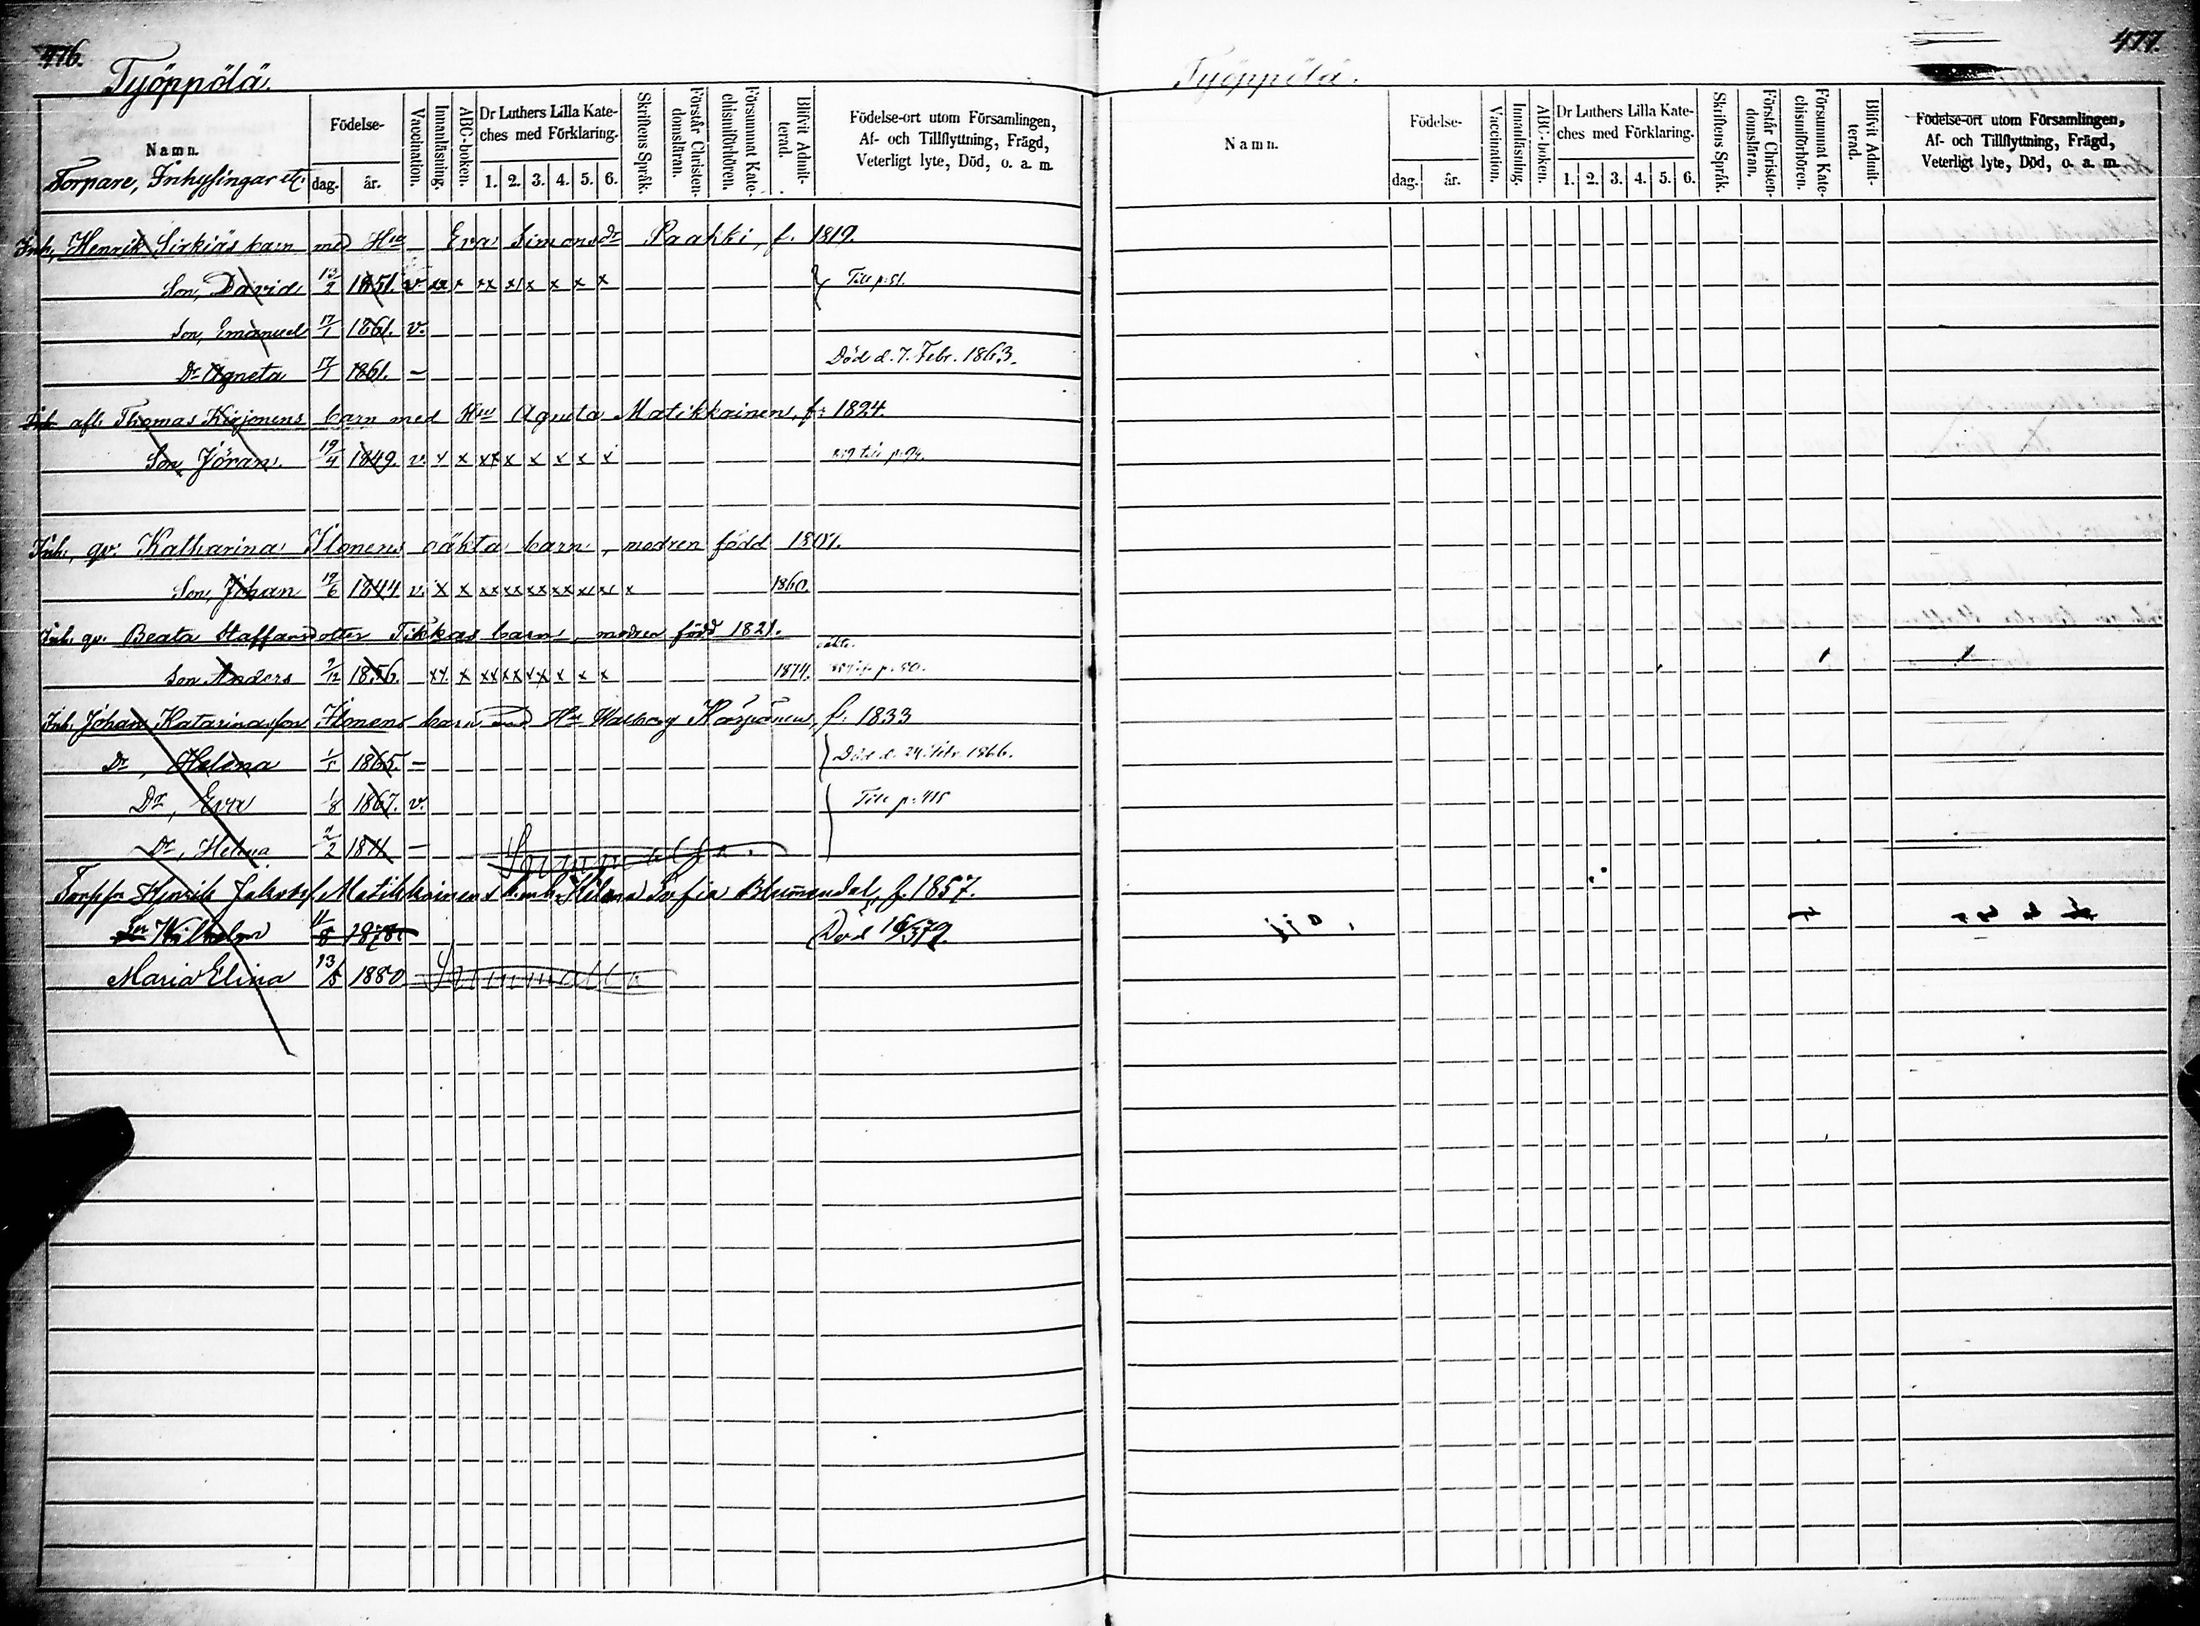 476.
Työppölä.
Namn.
Torpare, Inhysingar etc.
Födelse-
dag. år.
Vaccination.
Innanläsning.
ABC-boken.
Dr Luthers Lilla Kate-
ches med Förklaring.
1. 2. 3. 4. 5. 6.
Skriftens Språk.
Förstår Christen-
domsläran.
Försummat Kate-
chismiförhören.
Blifvit Admit-
terad.
Födelse-ort utom Församlingen,
Af- och Tillflyttning, Frägd,
Veterligt lyte, Död, o. a. m.
Inh, Henrik Sirkiäs barn med Hru Eva Simonsdr Paakki, f. 1819.
Son, David 13/2 1851. v xx x xx x x x x x Till p: 51.
Son, Emanuel 17/1 1861. v.
Dr Agneta 17/1 1861. – Död d. 7. Febr. 1863.
Inh afl. Thomas Kirjonens barn med Hru Agneta Matikkainen, f: 1824.
Son, Jöran 19/4 1849. v. x x xx x x x x x till p: 94.
Inh, qv: Katharina Ilonens oäkta barn, modren född 1807.
Son, Johan 19/6 1844 v. x x xx xx xx xx xx x x 1860.
Inh. qv. Beata Staffansdotter Tikkas barn, modren född 1821.
oäkta.
Son Anders 9/12 1856. xx x xx xx xx x x x 1874. p: 50.
Inh. Johan Katarinasson Ilonens barn med Hru Walborg Karponen, f: 1833
Dr, Helena 1/5 1865. – Död d. 24 1866.
Dr, Eva 1/8 1867. v. Till p: 415
Dr, Helena 2/2 1871 –
Torppr Henrik Jakobsf. Matikkainens barn, Helena Sofia Blumendal, f. 1857.
Son Wilhelm 11/8 1878 Död 16/3 79.
Maria Elina 13/8 1880
477.
Työppölä.
Namn.
Födelse-
dag. år.
Vaccination.
Innanläsning.
ABC-boken.
Dr Luthers Lilla Kate-
ches med Förklaring.
1. 2. 3. 4. 5. 6.
Skriftens Språk.
Förstår Christen-
domsläran.
Försummat Kate-
chismiförhören.
Blifvit Admit-
terad.
Födelse-ort utom Församlingen,
Af- och Tillflyttning, Frägd,
Veterligt lyte, Död, o. a. m.